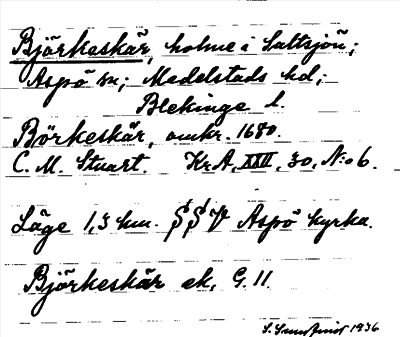 Björkeskär, holme i Saltsjön;
Aspö sn; Medelstads hd;
Blekinge l.
Börkeskär, omkr. 1680.
C. M. Stuart. KrA, XXII, 30, N:o 6.
Läge 1,3 km. SSV Aspö kyrka.
Björkeskär ek, G. 11.
1936